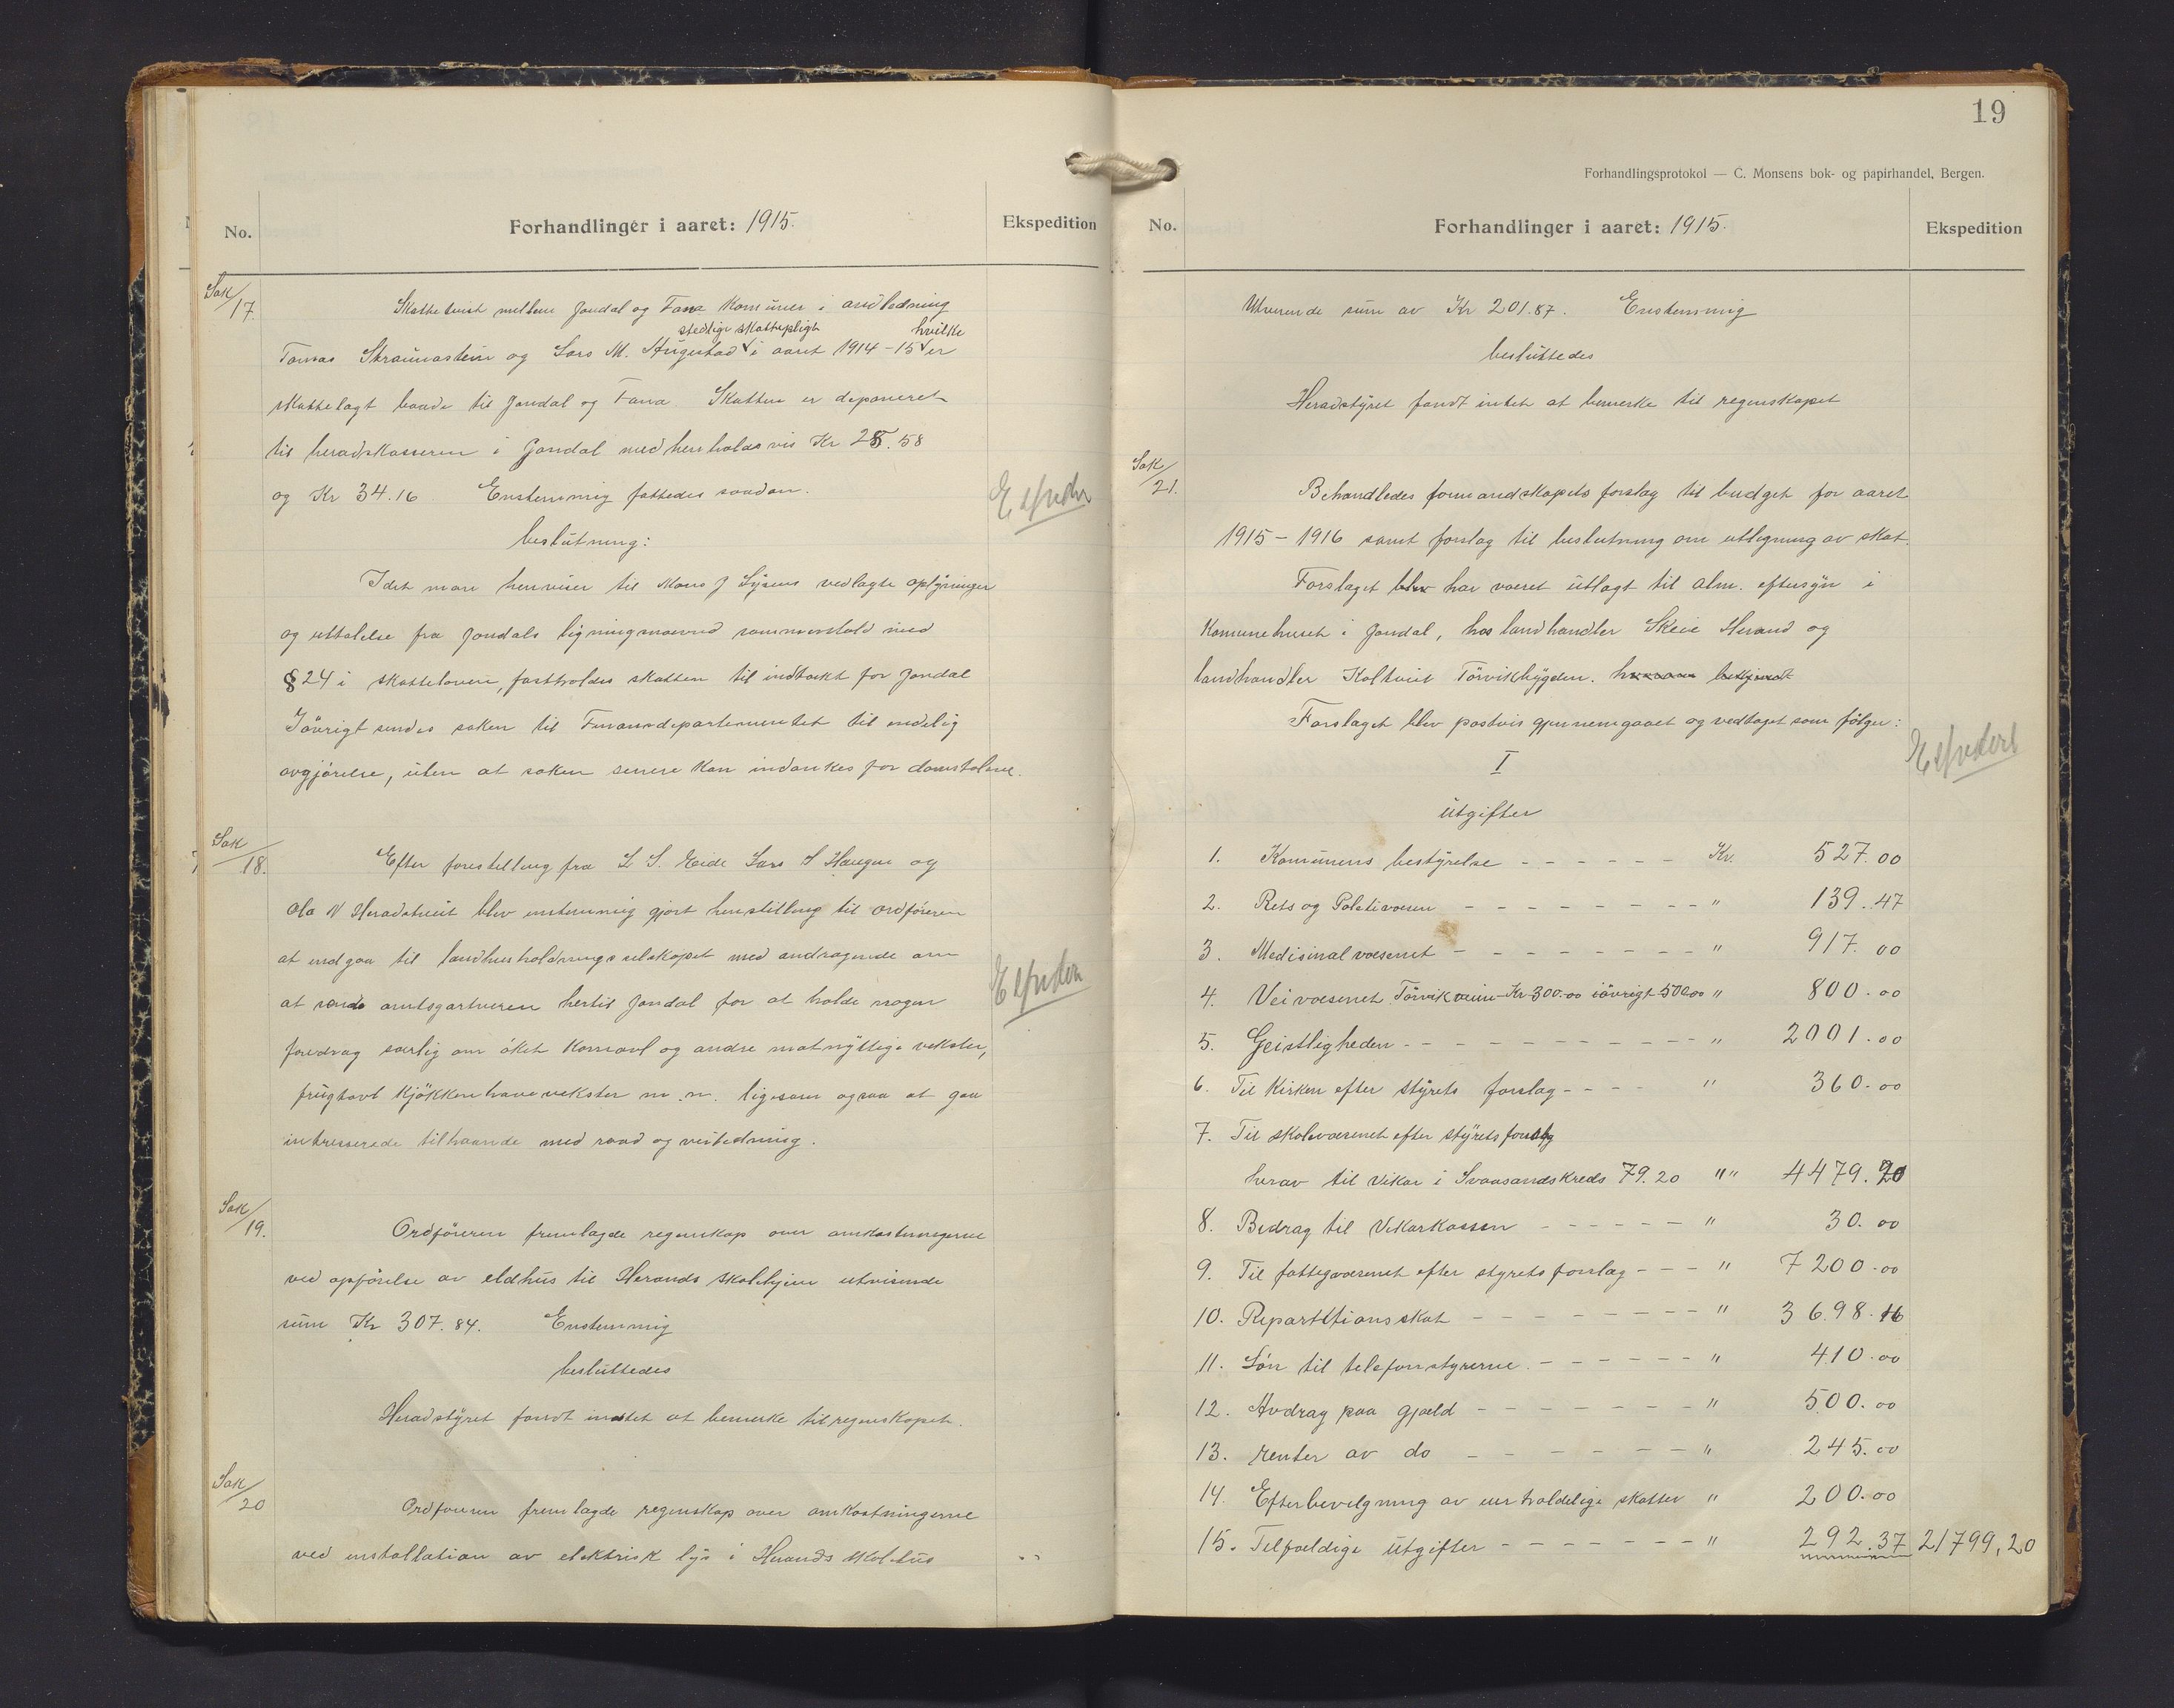 No.
Forhandlinger i aaret: 1915.
Ekspedition
Sak/17.
Skattetvist mellem Jondal og Fana Kommuner i andledning
stedlige skattepligt hvilke
Tomas Straumastein og Lars M. Haugestad i aaret 1914-15 er
skattelagt baade til Jondal og Fana Skatten er deponeret
til heradskasseren i Jondal med henholdsvis Kr 25.58
og Kr 34.16 Enstemmig fattedes saadan.
beslutning:
Idet man henviser til Mons J Lysens vedlagte oplysninger
og uttalelse fra Jondals ligningsnævnd sammenhold med
§ 24 i skatteloven, fastholdes skatten til indtækt for Jondal
Iøvrigt sendes saken til Finansdepartementet til endelig
avgjørelse, uten at saken senere kan indankes for domstolene.
Ekspeder
Sak/18.
Efter forestilling fra L S. Eide Lars S Haugen og
Ola N Heradstveit blev enstemmig gjort henstilling til ordføreren
at indgaa til landhusholdningsselskapet med andragende om
at sende amtsgartneren hertil Jondal for at holde nogen
foredrag særlig om øket kornavl og andre matnyttige vekster,
frugtavl kjøkkenhavevekster m.m. ligesom ogsaa at gaa
intresserede tilhaande med raad og veiledning.
Sak/19.
Ordføreren fremlagde regnskap over omkostningerne
ved opførelse av eldhus til Herands skolehjem utvisende
sum Kr 307.84. Enstemmig
besluttedes
Heradstyret fandt intet at bemerke til regnskapet.
Sak/20
Ordføreren fremlagde regnskap over omkostningerne
ved installation av elektrisk lys i Herands skolehus
19
Forhandlingsprotokol — C. Monsens bok- og papirhandel, Bergen.
No.
Forhandlinger i aaret: 1915.
Ekspedition
Utvisende sum av Kr 201.87. Enstemmig
besluttedes
Heradstyret fandt intet at bemerke til regnskapet
Sak/21.
Behandledes formandskapets forslag til budget for aaret
1915-1916 samt forslag til beslutning om utligning av skat.
Forslaget blev har været utlagt til alm. eftersyn i
Komunehuset i Jondal, hos landhandler Skeie Herand og
landhandler Koltveit Tørvikbygden. bekjendt
Forslaget blev postvis gjennemgaaet og vedtaget som følger:
Ekspedert
I
Utgifter
1. Kommunens bestyrelse - - - - - - Kr. 527.00
2. Rets og Politivæsen - - - - - - - - - " 139.47
3. Medisinalvæsenet - - - - - - - - - " 917.00
4. Veivæsenet Tørvikveien Kr 300.00 iøvrigt 500.00 " 800.00
5. Geistligheden - - - - - - - - - - - - " 2001.00
6. Til Kirken efter styrets forslag - - - - " 360.00
7. Til skolevæsenet efter styrets forslag
herav til vikar i Svaasandskreds 79.20 " " 4479.20
8. Bidrag til Vikarkassen - - - - - - " 30.00
9. Til fattigvæsenet efter styrets forslag - - - " 7200.00
10. Repartitionsskat - - - - - - - - - " 3698.16
11. Løn til telefonstyrerne. - - - - - - " 410.00
12. Avdrag paa gjæld - - - - - - - - " 500.00
13. renter av do - - - - - - - " 245.00
14. Efterbevilgning av uerholdelige skatter " 200.00
15. Tilfældige utgifter - - - - - - - " 292.37 21799,20